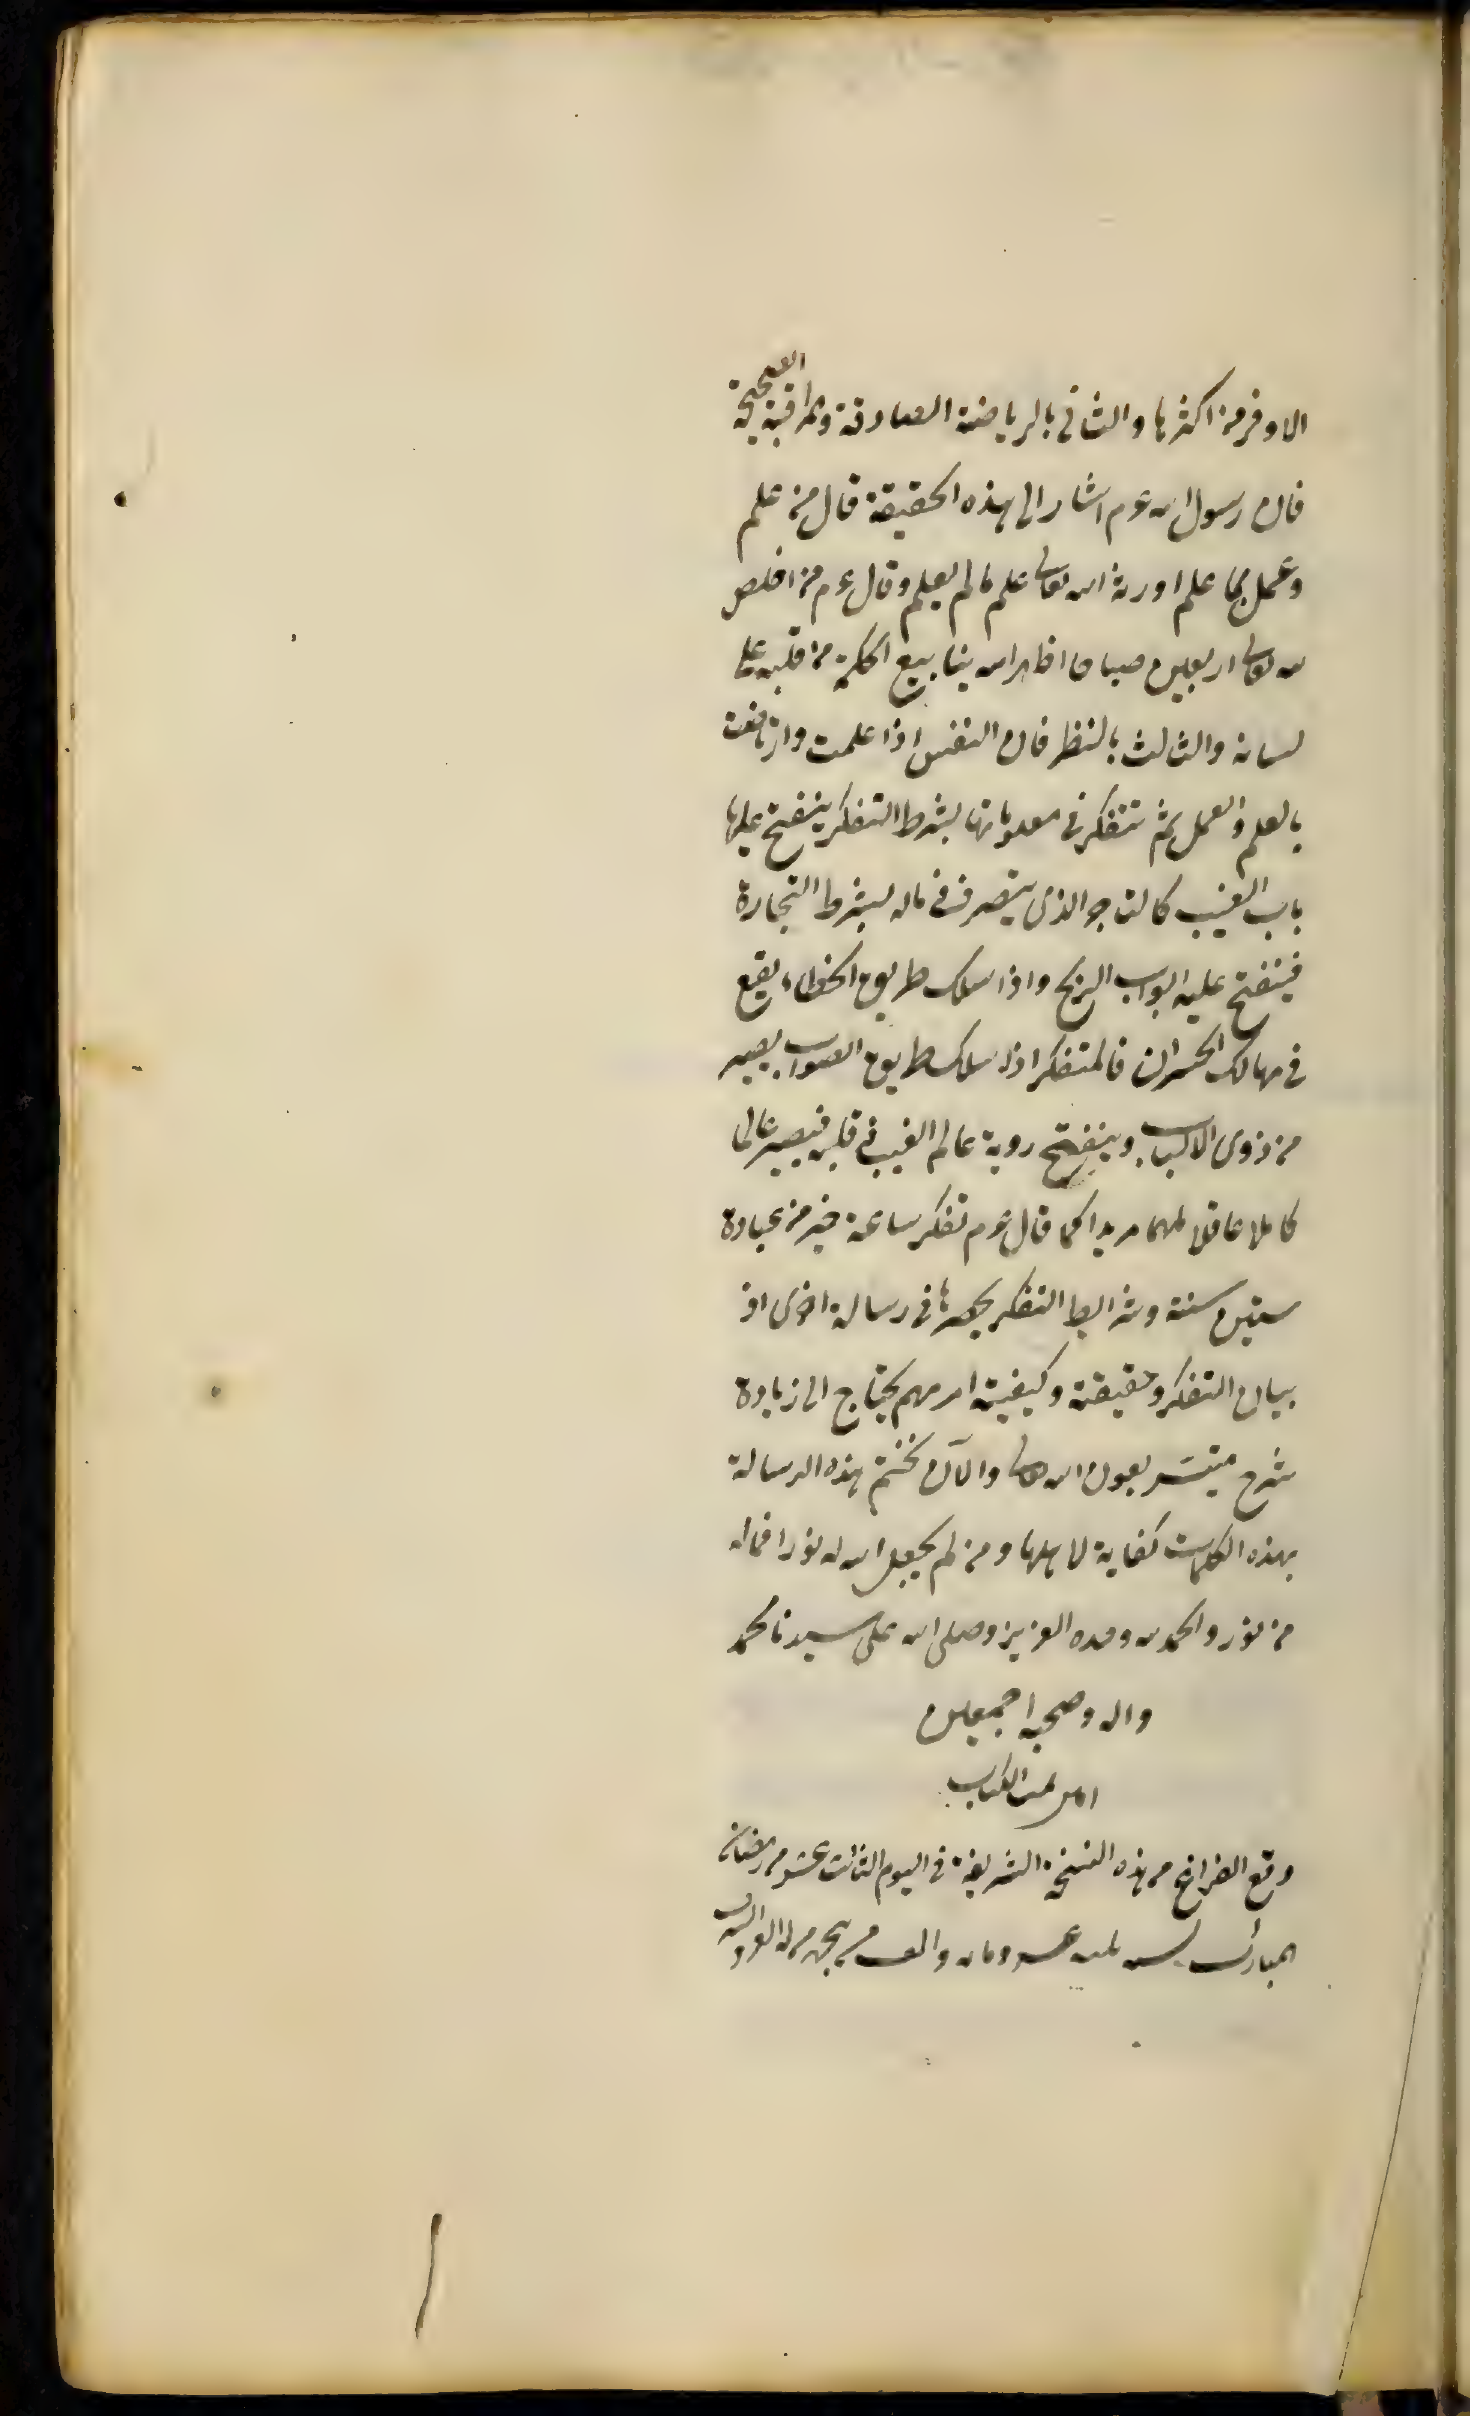 الاوفر من اكثرها والثانى بالرياضة الصادقة والمراقبة الصحيحة
فان رسول الله عم اشار الى هذه الحقيقة قال من علم
وعمل بما علم اورثه الله تعالى علم ما لم يعلم وقال عم من اخلص
لله تعالى اربعين صباحا اظهر الله ينابيع الحكمة من قلبه على
لسانه والثالث بالتفكر فان النفس اذا علمت وارتاضت
بالعلم والعمل ثم تتفكر فى معلوماتها بشرط التفكر ينفتح عليها
باب الغيب كالتاجر الذى يتصرف فى ماله بشرط التجارة
فينفتح عليه ابواب الربح واذا سلك طريق الخطاء يقع
فى مهالك الخسران فالمتفكر اذا سلك طريق الصواب يصير
من ذوى الالباب وينفتح روية عالم الغيب فى قلبه فيصير عالما
كاملا عاقلا ملهما مريدا كما قال عم تفكر ساعة خير من عبادة
ستين سنة وشرايط التفكر نحصرها فى رسالة اخرى اذ
بيان التفكر وحقيقته وكيفيته امر مهم يحتاج الى زيادة
شرح متيسر بعون الله تعالى والآن نختم هذه الرسالة
بهذه الكلمات كفاية لاهلها ومن لم يجعل الله له نورا فما له
من نور والحمد لله وحده العزيز وصلى الله على سيدنا محمد
واله وصحبه اجمعين
امين تمت الكتاب
وقع الفراغ من هذه النسخة الشريفة فى اليوم الثالث عشر من رمضان
المبارك لسنة ثلث عشر ومائة والف من هجرة من له العز والشرف